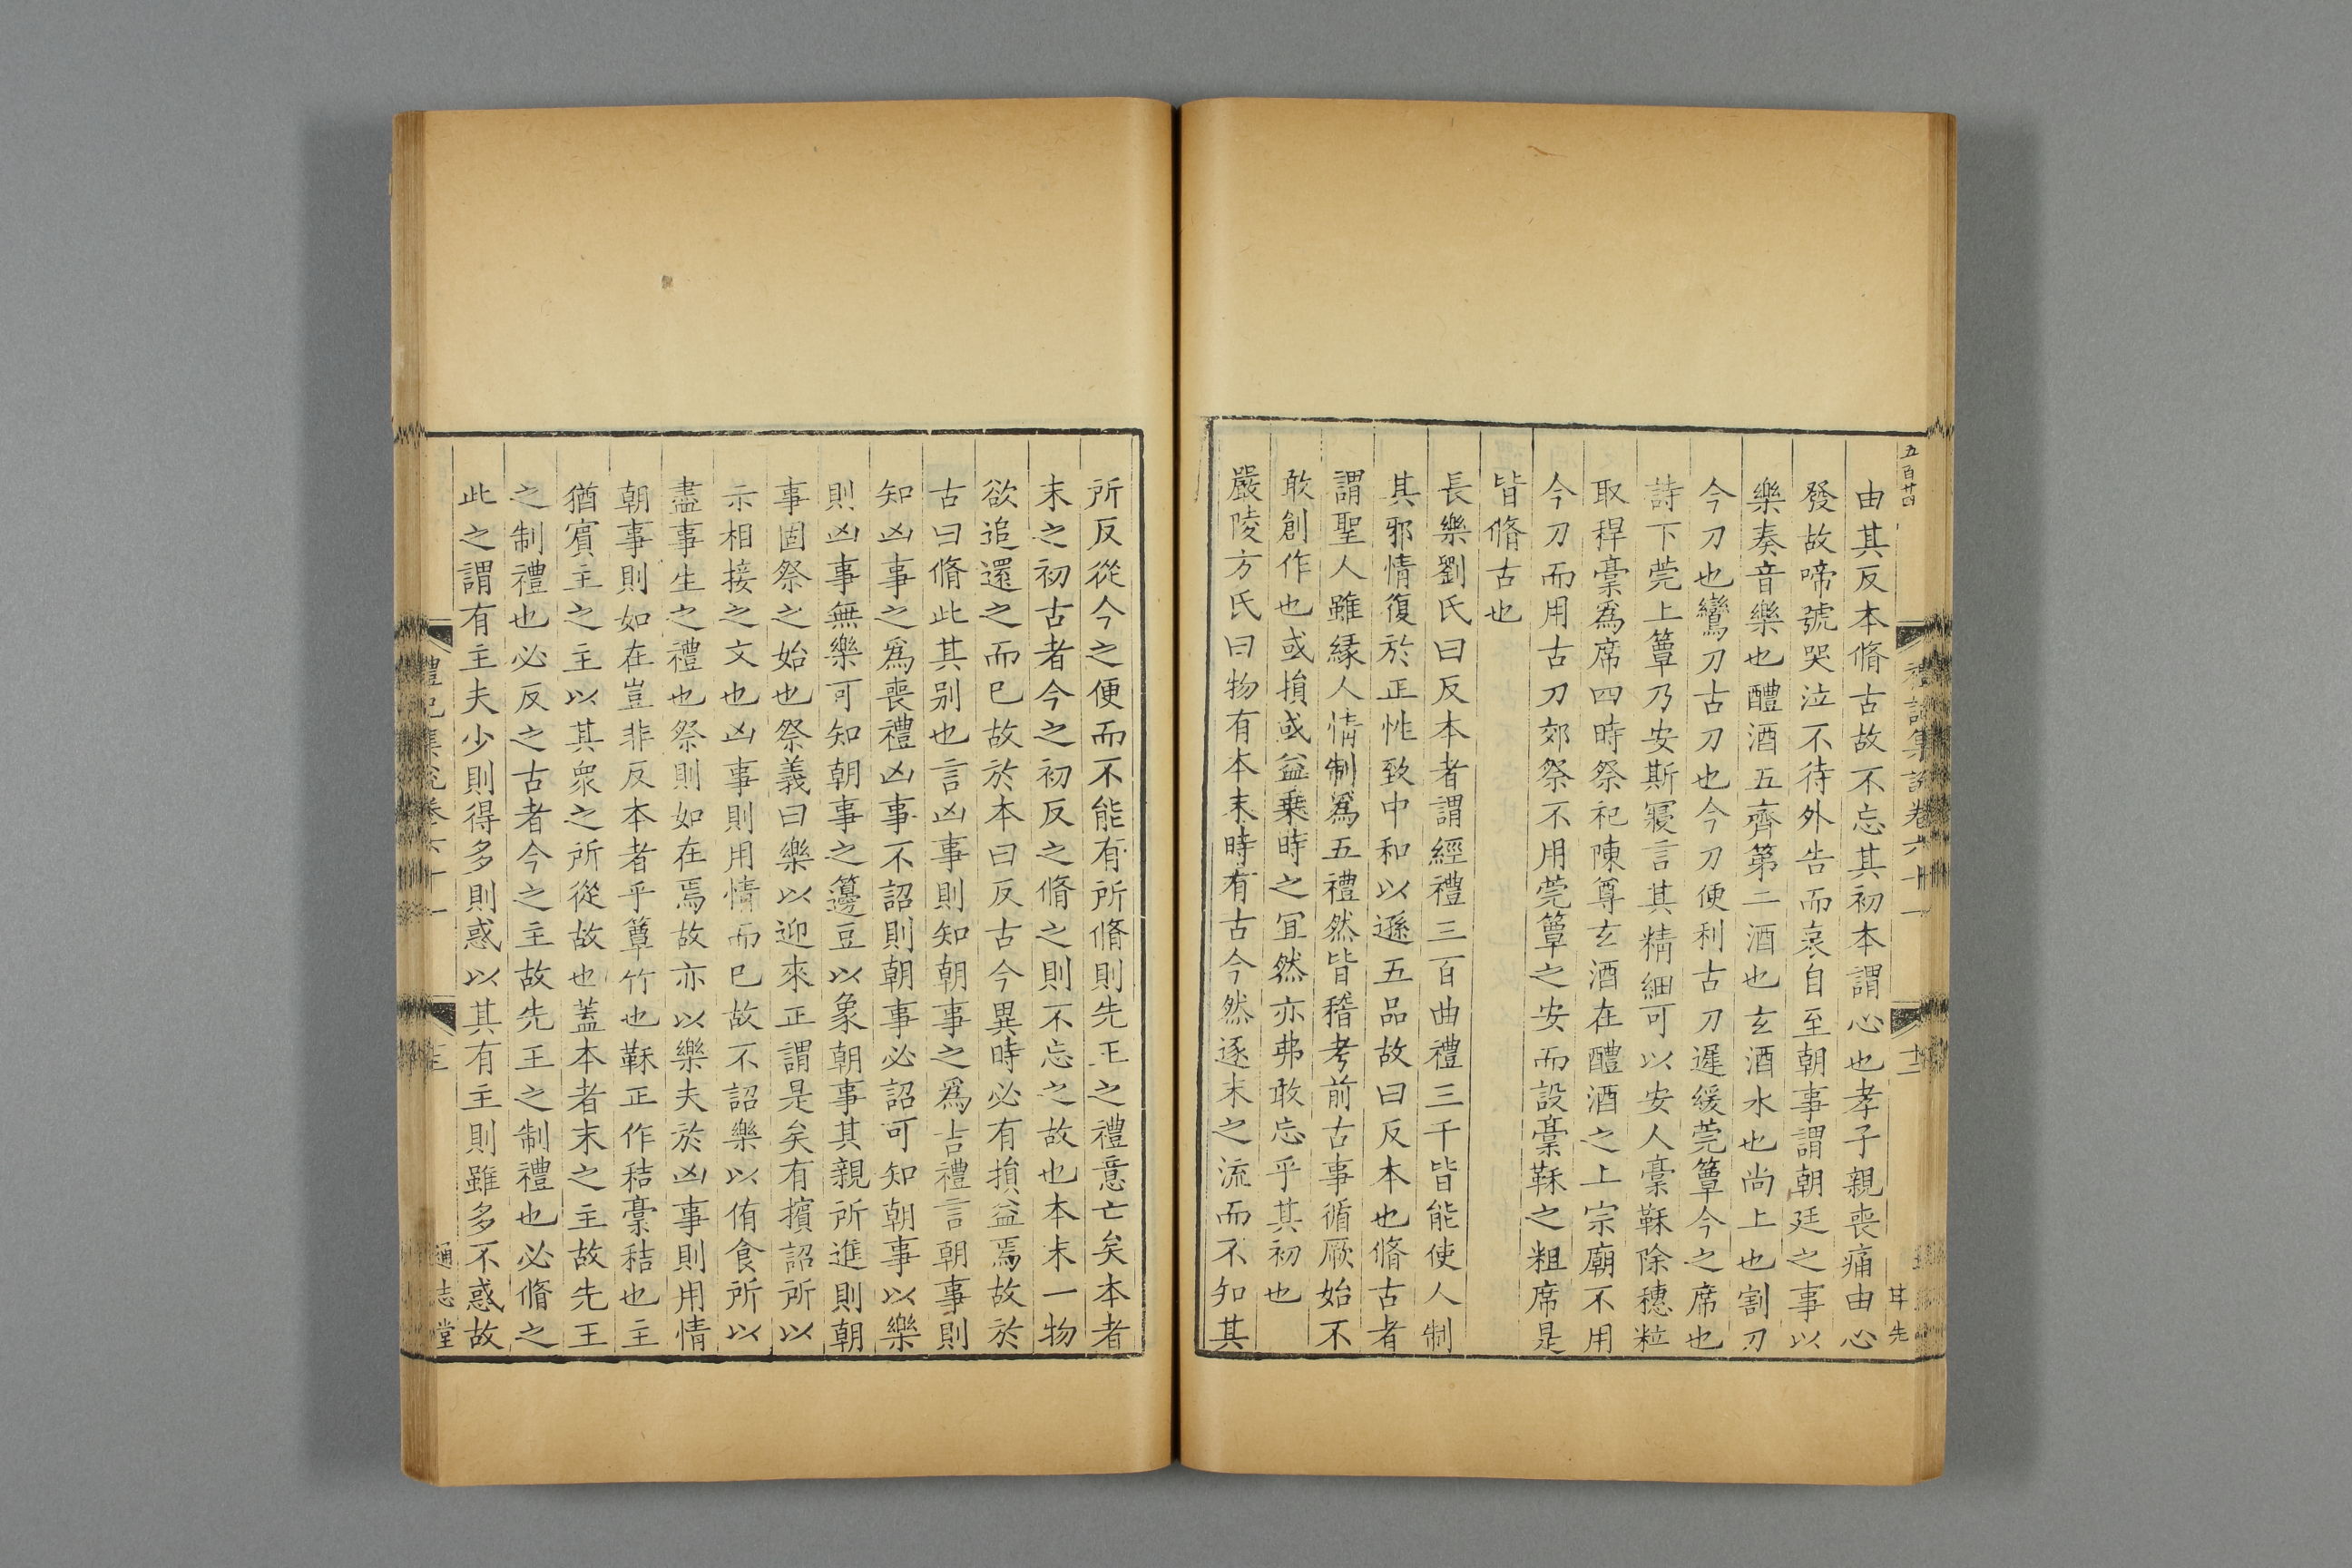 五百廿四
禮記集說卷六十一
十二
甘先
由其反本脩古故不忘其初本謂心也孝子親喪痛由心
發故啼號哭泣不待外告而哀自至朝事謂朝廷之事以
樂奏音樂也醴酒五齊第二酒也玄酒水也尚上也割刀
今刀也鸞刀古刀也今刀便利古刀遲緩莞簟今之席也
詩下莞上簟乃安斯寢言其精細可以安人稾鞂除穗粒
取稈稾爲席四時祭祀陳尊玄酒在醴酒之上宗廟不用
今刀而用古刀郊祭不用莞簟之安而設稾鞂之粗席是
皆脩古也
長樂劉氏曰反本者謂經禮三百曲禮三千皆能使人制
其邪情復於正性致中和以遜五品故曰反本也脩古者
謂聖人雖緣人情制爲五禮然皆稽考前古事循厥始不
敢創作也或損或益乗時之冝然亦弗敢忘乎其初也
嚴陵方氏曰物有本末時有古今然逐末之流而不知其
所反從今之便而不能有所脩則先王之禮意亡矣本者
末之初古者今之初反之脩之則不忘之故也本末一物
欲追還之而已故於本曰反古今異時必有損益焉故於
古曰脩此其别也言凶事則知朝事之爲吉禮言朝事則
知凶事之爲喪禮凶事不詔則朝事必詔可知朝事以樂
則凶事無樂可知朝事之籩豆以象朝事其親所進則朝
事固祭之始也祭義曰樂以迎來正謂是矣有擯詔所以
示相接之文也凶事則用情而已故不詔樂以侑食所以
盡事生之禮也祭則如在焉故亦以樂夫於凶事則用情
朝事則如在豈非反本者乎簟竹也鞂正作秸稾秸也主
猶賔主之主以其衆之所從故也蓋本者末之主故先王
之制禮也必反之古者今之主故先王之制禮也必脩之
此之謂有主夫少則得多則惑以其有主則雖多不惑故
禮記集說卷六十一
通志堂